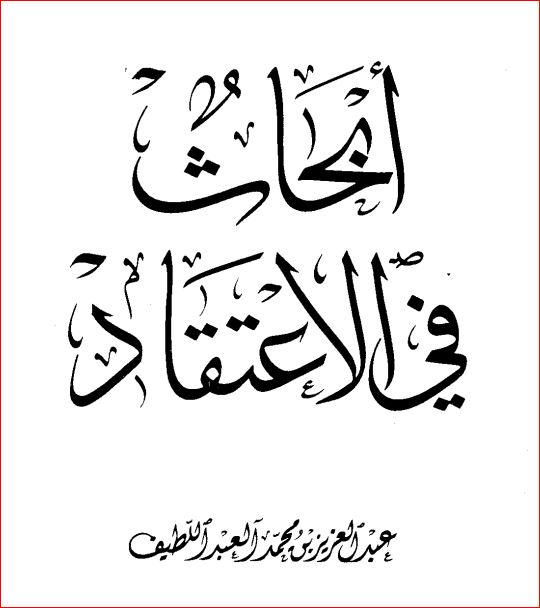 أبحاثٌ
في الاعتقاد
عبد العزيز بن محمد آل عبد اللطيف